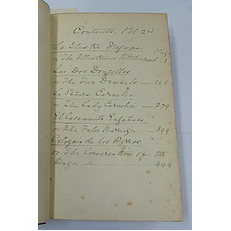 Contents. Vol 2nd
La Ilustre Fregona Page
or The Illustrious 1
Las Dos Doncellas
or The Two Damsels — 161
La Señora Cornelia
or The Lady Cornelia — 279
El Casamiento Engañoso
or The False Marriage 399
Coloquio de los Perros
or The Conversation of the
Dogs — 444